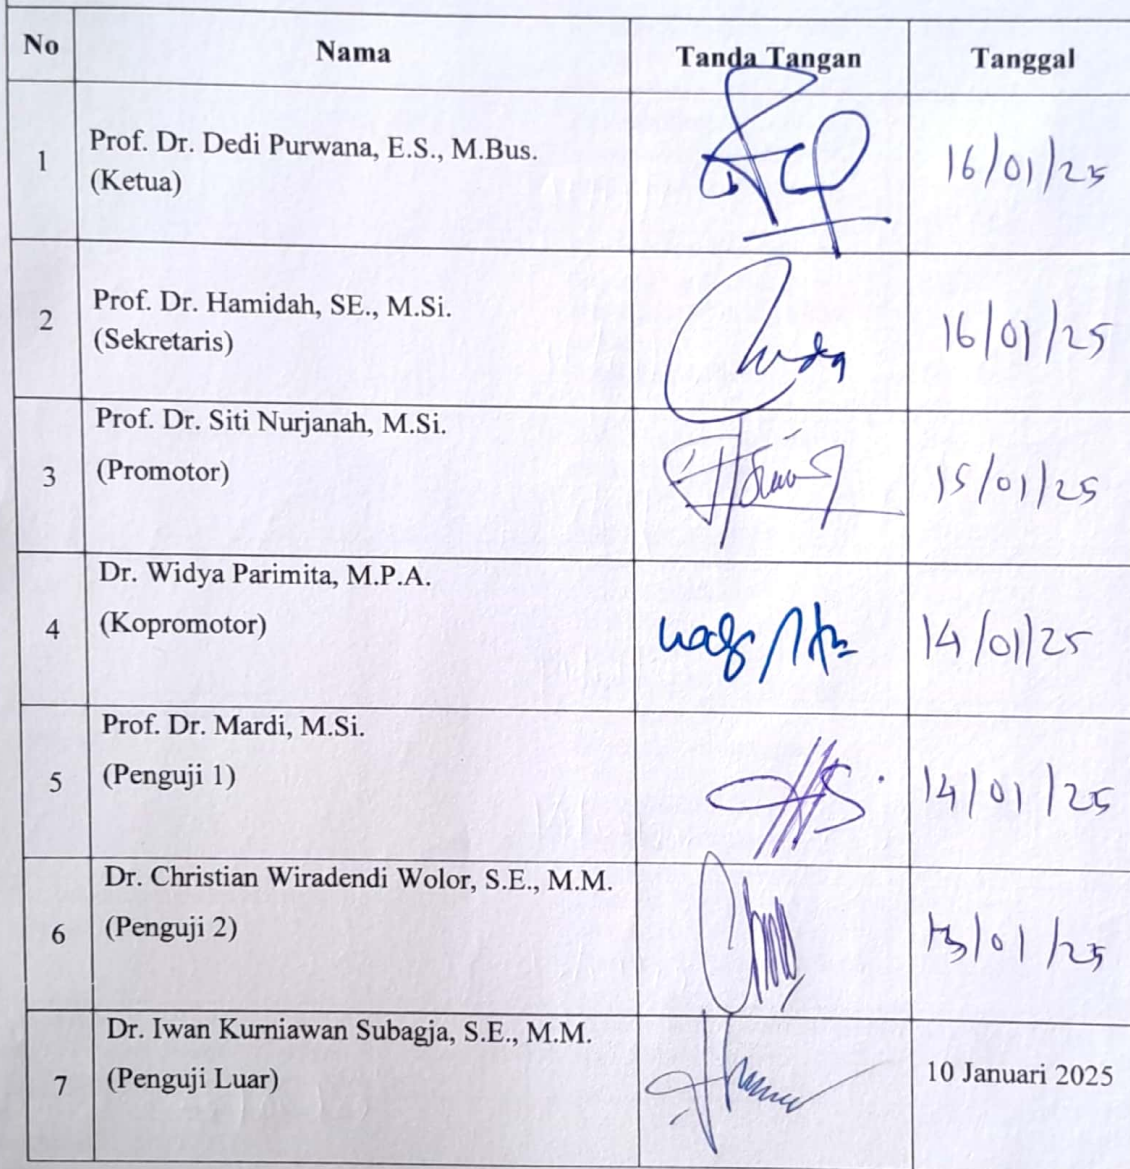 No Nama Tanda Tangan Tanggal
1 Prof. Dr. Dedi Purwana, E.S., M.Bus. 16/01/25
(Ketua)
2 Prof. Dr. Hamidah, SE., M.Si. 16/01/25
(Sekretaris)
Prof. Dr. Siti Nurjanah, M.Si.
3 (Promotor) 15/01/25
Dr. Widya Parimita, M.P.A.
4 (Kopromotor) 14/01/25
Prof. Dr. Mardi, M.Si.
5 (Penguji 1) 14/01/25
Dr. Christian Wiradendi Wolor, S.E., M.M.
6 (Penguji 2) 13/01/25
Dr. Iwan Kurniawan Subagja, S.E., M.M.
7 (Penguji Luar) 10 Januari 2025